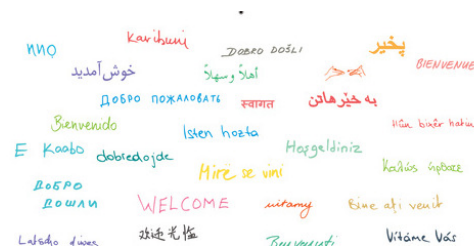 Karibuni
ὈΝΙϘ
DOBRO DOŠLI
پخیر
BIENVENUE
خوش آمدید
أهلاً وسهلاً
ДОБРО ПОЖАЛОВАТЬ
स्वागत
به خێرهاتن
Bienvenido
Isten hozta
Hûn bixêr hatin
E Kaabo
dobredojde
Hoşgeldiniz
Mirë se vini
Καλώς ήρθατε
ДОБРО
ДОШЛИ
WELCOME
witamy
Bine aţi venit
Latscho diwes
欢迎光临
Benvenuti
Vítáme Vás